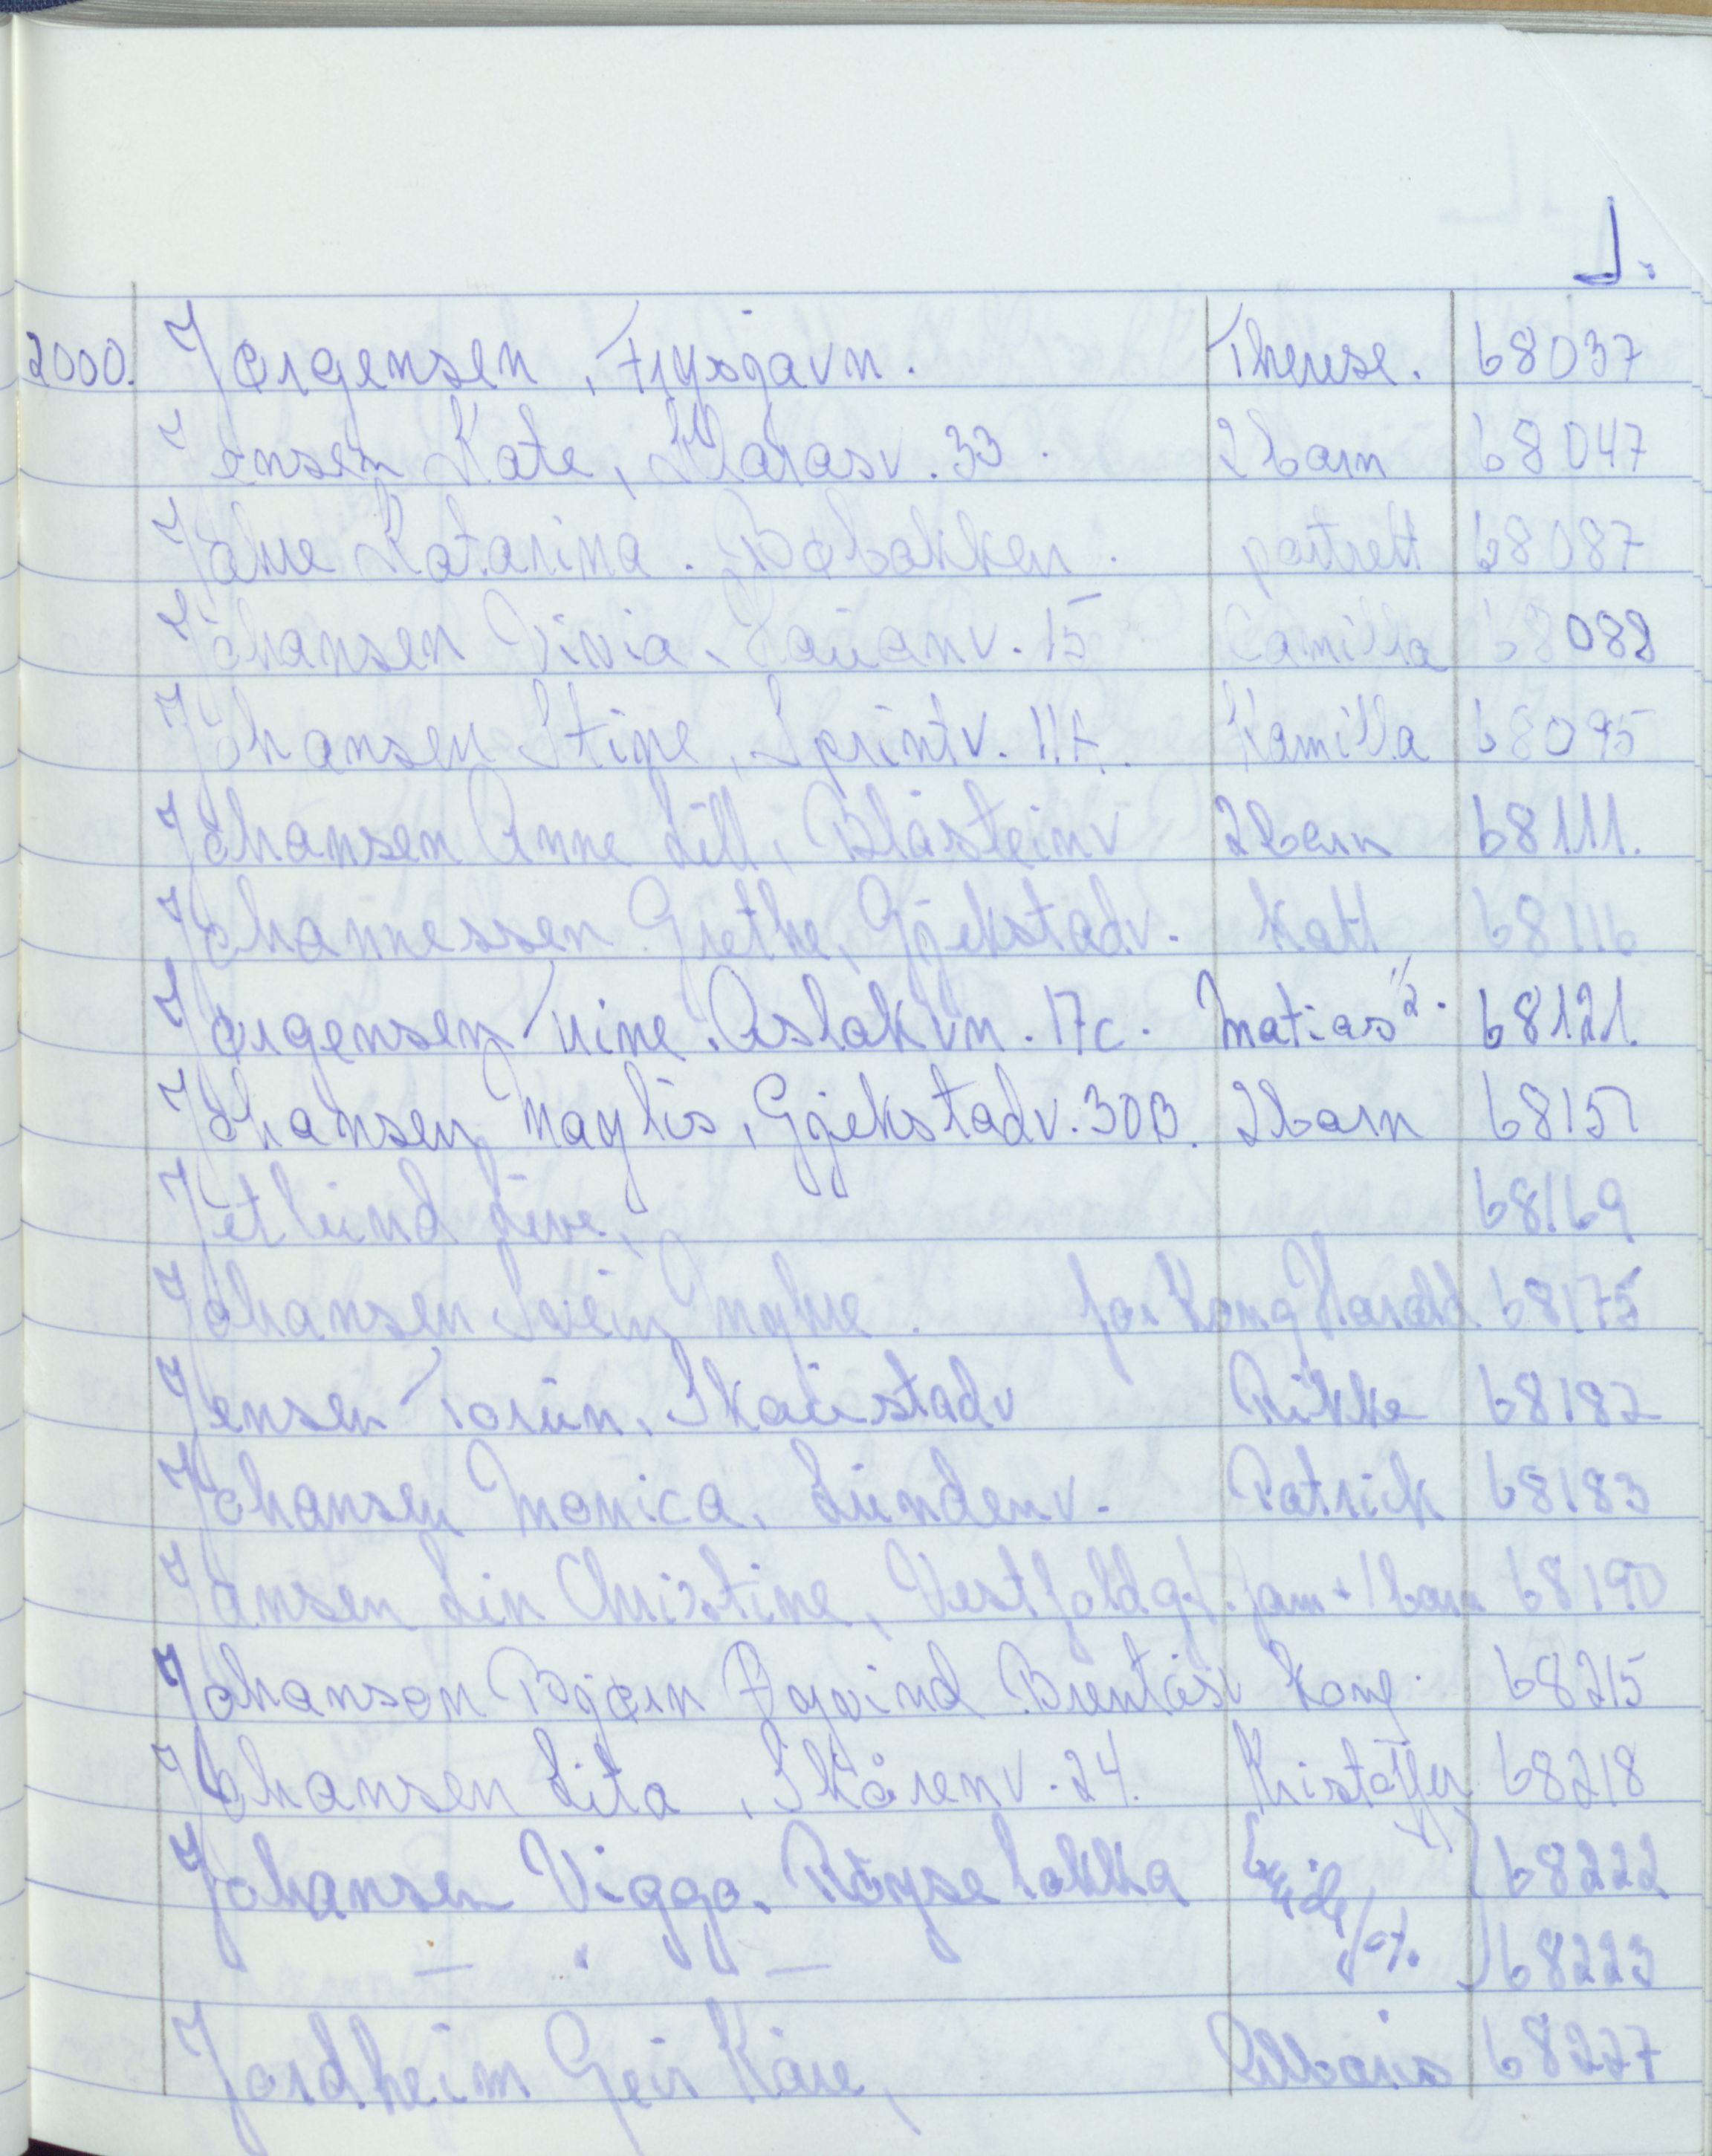 J.
2000. Jørgensen, Frysjavn. Therese. 68037
Jensen Kate, Klarasv. 33. 2 barn 68047
Jahre Katarina. Bøbakken. portrett 68087
Johansen Vivia. 15 Camilla 68088
Johansen Stine, Sprintv. 11A. Kamilla 68095
Johansen Anne Lill, Blåsteinv 2 barn 68111.
Johannessen Grethe, Gjekstadv. Katt 68116
Jørgensen Trine. Aslakvn. 17c. Matias 68121.
Johansen Maylis, Gjekstadv. 30B. 2 barn 68157
Jetlund Live, 68169
Johansen Svein Yngve. for Kong Harald 68175
Jensen Torun. Skaustadv Rikke 68182
Johansen Monica. Lundenv. Patrick 68183
Jansen Lin Christine, Vestfoldgt. fam + 1 barn 68190
Johanson Bjørn Øyvind Brentåsv Kong. 68215
Johansen Lita, Skårenv. 24. Kristoffer 68218
Johansen Viggo. Røyseløkka 68222
— " — 68223
Jordheim Geir Kåre, 68227